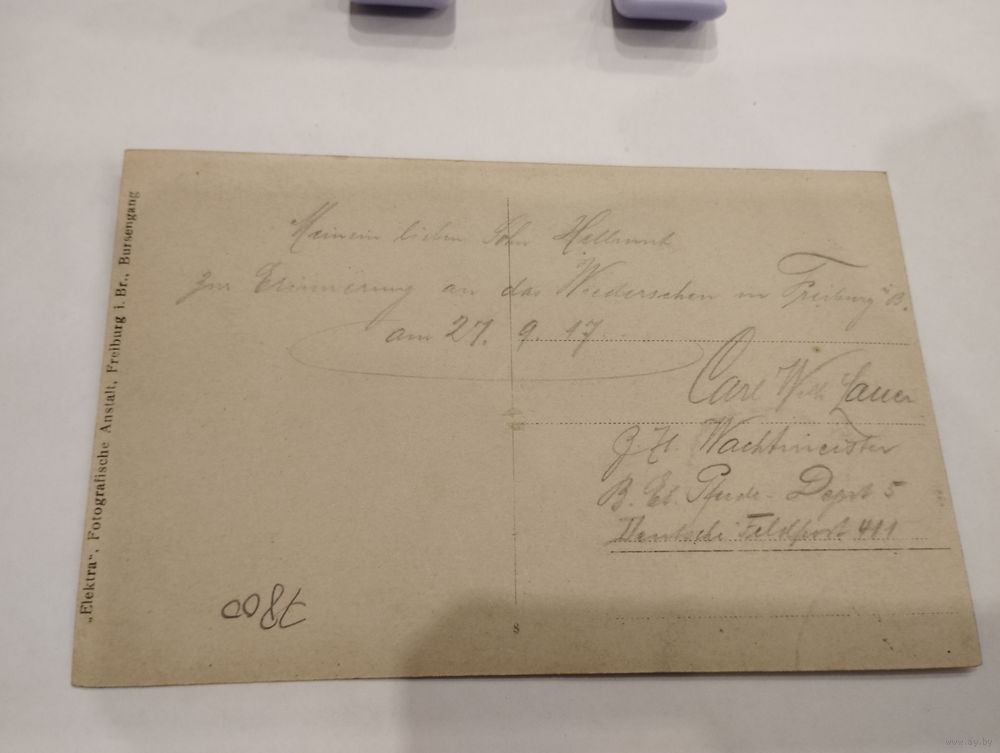 Meinem lieben Sohn Hellmut
zur Erinnerung an das Wiedersehen in Freiburg i/B.
am 27. 9. 17.
Carl Wilh. Lauer
z. Zt. Wachtmeister
B. Et. Pferde-Depot 5
Deutsche Feldpost 411
„Elektra“, Fotografische Anstalt, Freiburg i. Br., Bursengang
7800
8
www.ay.by